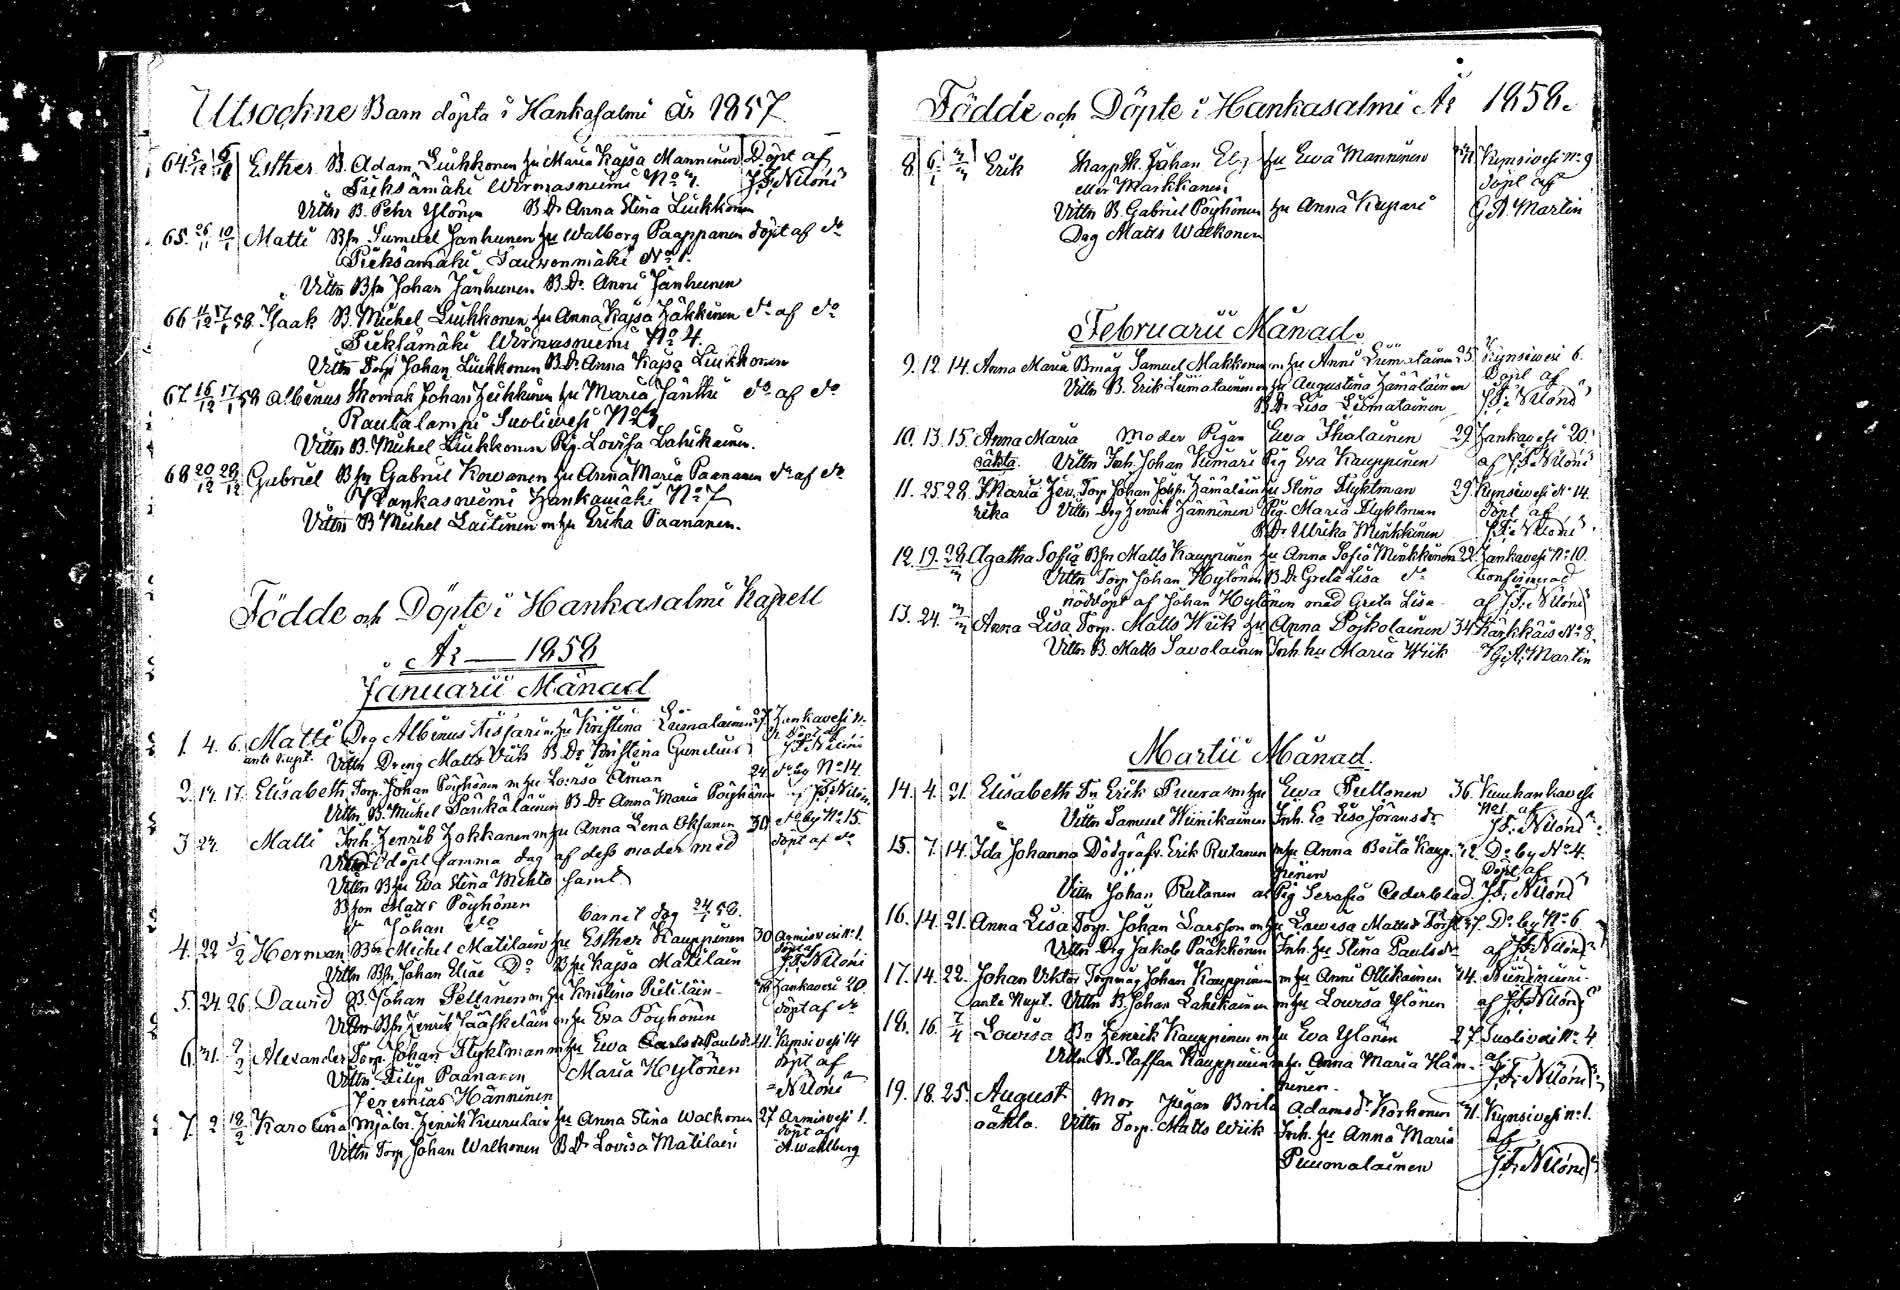 Utsockne Barn döpta i Hankasalmi år 1857
64 5/12 6/1 Esther B. Adam Liukkonen hu Maria Kajsa Manninen Döpt af
Pieksämäki Wirmasniemi No 7. J.F. Niloni
Vittn B. Pehr Ylönen B.Dr Anna Stina Liukkonen
65. 26/11 10/1 Matti Bfn Samuel Janhunen hu Walborg Paappanen döpt af do
Pieksämäki No 1.
Vittn Bfn Johan Janhunen B.Dr Anni Janhunen
66 17/1 58. Isaak B. Michel Liukkonen hu Anna Kajsa Häkkinen do af do
Pieksämäki Wirmasniemi No 4.
Vittn Torp Johan Liukkonen B.Dr Anna Kajsa Liukkonen
67. 16/12 17/1 58 Albinus Skomak Johan hu Maria Jantti do af do
Rautalampi No
Vittn B. Michel Liukkonen Pig. Lovisa Lahikainen.
68 20/12 28/12 Gabriel Bfn Gabriel Kowanen hu Anna Maria Paananen do af do
Hankamäki No 7
Vittn B Michel Laitinen m hu Erika Paananen.
Födde och Döpte i Hankasalmi Kapell
År — 1858
Januarii Månad
1. 4. 6. Matti Drg Albinus Tissari m hu Kristina Liimatainen 27 Hankavesi n.
ante nupt. Vittn Dreng Matts Wiik B.Dr Kristina Gunelius J.F. Niloni
2. 14. 17. Elisabeth Torp. Johan Pöyhönen m hu Lovisa Åman 24 do by No 14.
Vittn B. Michel B.Dr Anna Maria Pöyhönen J.F. Niloni
3 24. Matti Inh. Henrik Hokkanen m hu Anna Lena Oksanen 30 do by No 15.
Nöddöpt samma dag af dess moder med döpt af do
Vittn B hu Eva Stina Mehto samt
Bfon Matts Pöyhönen
d Johan do barnet dog 24/1 58.
4. 22 3/2 Herman Bfn Michel Matilain hu Esther Kauppinen 30 Armisvesi No 1.
Vittn Bfn Johan Eliae Do B hu Kajsa Matilain döpt af J.F. Niloni
5. 24 26. David B. Johan Pellinen m hu Kristina Pieliläin Hankavesi 20.
Vittn Bfn Henrik Jääskeläin m hu Eva Pöyhönen döpt af do
6. 31. 7/2 Alexander Torp. Johan Flyktman m hu Ewa Carlsdr Paulsdr 41. Kynsivesi 14
Vittn Filip Paananen Maria Hylönen döpt af
Jeremias Hänninen Niloni
7. 2 18/2 Karolina Mjöln. Henrik hu Anna Stina Walkonen 27 Armisvesi 1.
Vittn Torp Johan Walkonen B.Dr Lovisa Matilain döpt af A. Wahlberg
Födde och Döpte i Hankasalmi År 1858.
8. 6/1 Erik Skarpsk. Johan Elg hu Ewa Manninen Kynsivesi No 9
eller Markkanen döpt af
Vittn B. Gabriel Pöyhönen hu Anna Kupari G.A. Martin
Drg Matts Walkonen
Februarii Månad.
9. 12. 14. Anna Maria Bmåg Samuel Makkonen m hu Anni Liimatainen 25 Kynsivesi 6.
Vittn B. Erik Liimatainen m hu Augustina Hämäläinen Döpt af
B.Dr Lisa Liimatainen J.F. Niloni
10. 13. 15. Anna Maria Moder Pigan Ewa Ihalainen 29. Hankavesi 20.
oäkta. Vittn Inh. Johan Kumari Pig Eva Kauppinen af J.F. Niloni
11. 25. 28. Maria Hen. Torp Johan Johfn. Hämäläin hu Stina Flyktman 29. Kynsivesi No 14.
rika Vittn Drg Henrik Hänninen Pig. Maria Flyktman döpt af
B.Dr Ulrika Minkkinen J.F. Niloni
12. 19. 28 Agatha Sofia Bfn Matts Kauppinen hu Anna Sofia Minkkinen 22 Hankavesi No 10.
Vittn Torp Johan Hylönen B.Dr Greta Lisa do Confirmerad
nöddöpt af Johan Hylönen med Greta Lisa. af J.F. Niloni
13. 24. Anna Lisa Torp. Matts Wiik hu Anna Pojkolainen 34 Kärkkäis No 8.
Vittn B. Matts Savolainen Inh. hu Maria Wiik G.A. Martin
Martii Månad.
14. 4. 21. Elisabeth Tn Erik Puura m hu Ewa Puttonen 36. Kuuhankavesi
Vittn Samuel Wiinikainen Inh. Ea Lisa Jöransdr No 1. af J.F. Niloni
15. 7. 14. Ida Johanna Dödgräfv. Erik Rutanen m hu Anna Brita Kaup- 42. Do by No 4.
pinen Döpt af
Vittn Johan Rutanen Pig Serafia Cederblad. J.F. Niloni
16. 14. 21. Anna Lisa Torp. Johan Larsson m hu Lowisa Mattsdr 27. Do by No 6
Vittn Drg Jakob Pääkkönen Inh. hu Stina Paulsdr af J.F. Niloni
17. 14. 22. Johan Viktor Torpmåg Johan Kauppinen m hu Anni Ollikainen 24. Niinimäki
ante Nupt. Vittn B. Johan Lahikainen m hu Lovisa Ylönen af J.F. Niloni
18. 16. 7/4 Lovisa Bn Henrik Kauppinen m hu Eva Ylönen 27. Suolivesi No 4
Vittn B. Staffan Kauppinen m hu Anna Maria Hän- af
ninen. J.F. Niloni
19. 18. 25. August Mor pigan Brita Adamsdr Korhonen 31. Kynsivesi No 1.
oäkta. Vittn Torp. Matts Wiik Inh. hu Anna Maria af
Puuomalainen J.F. Niloni